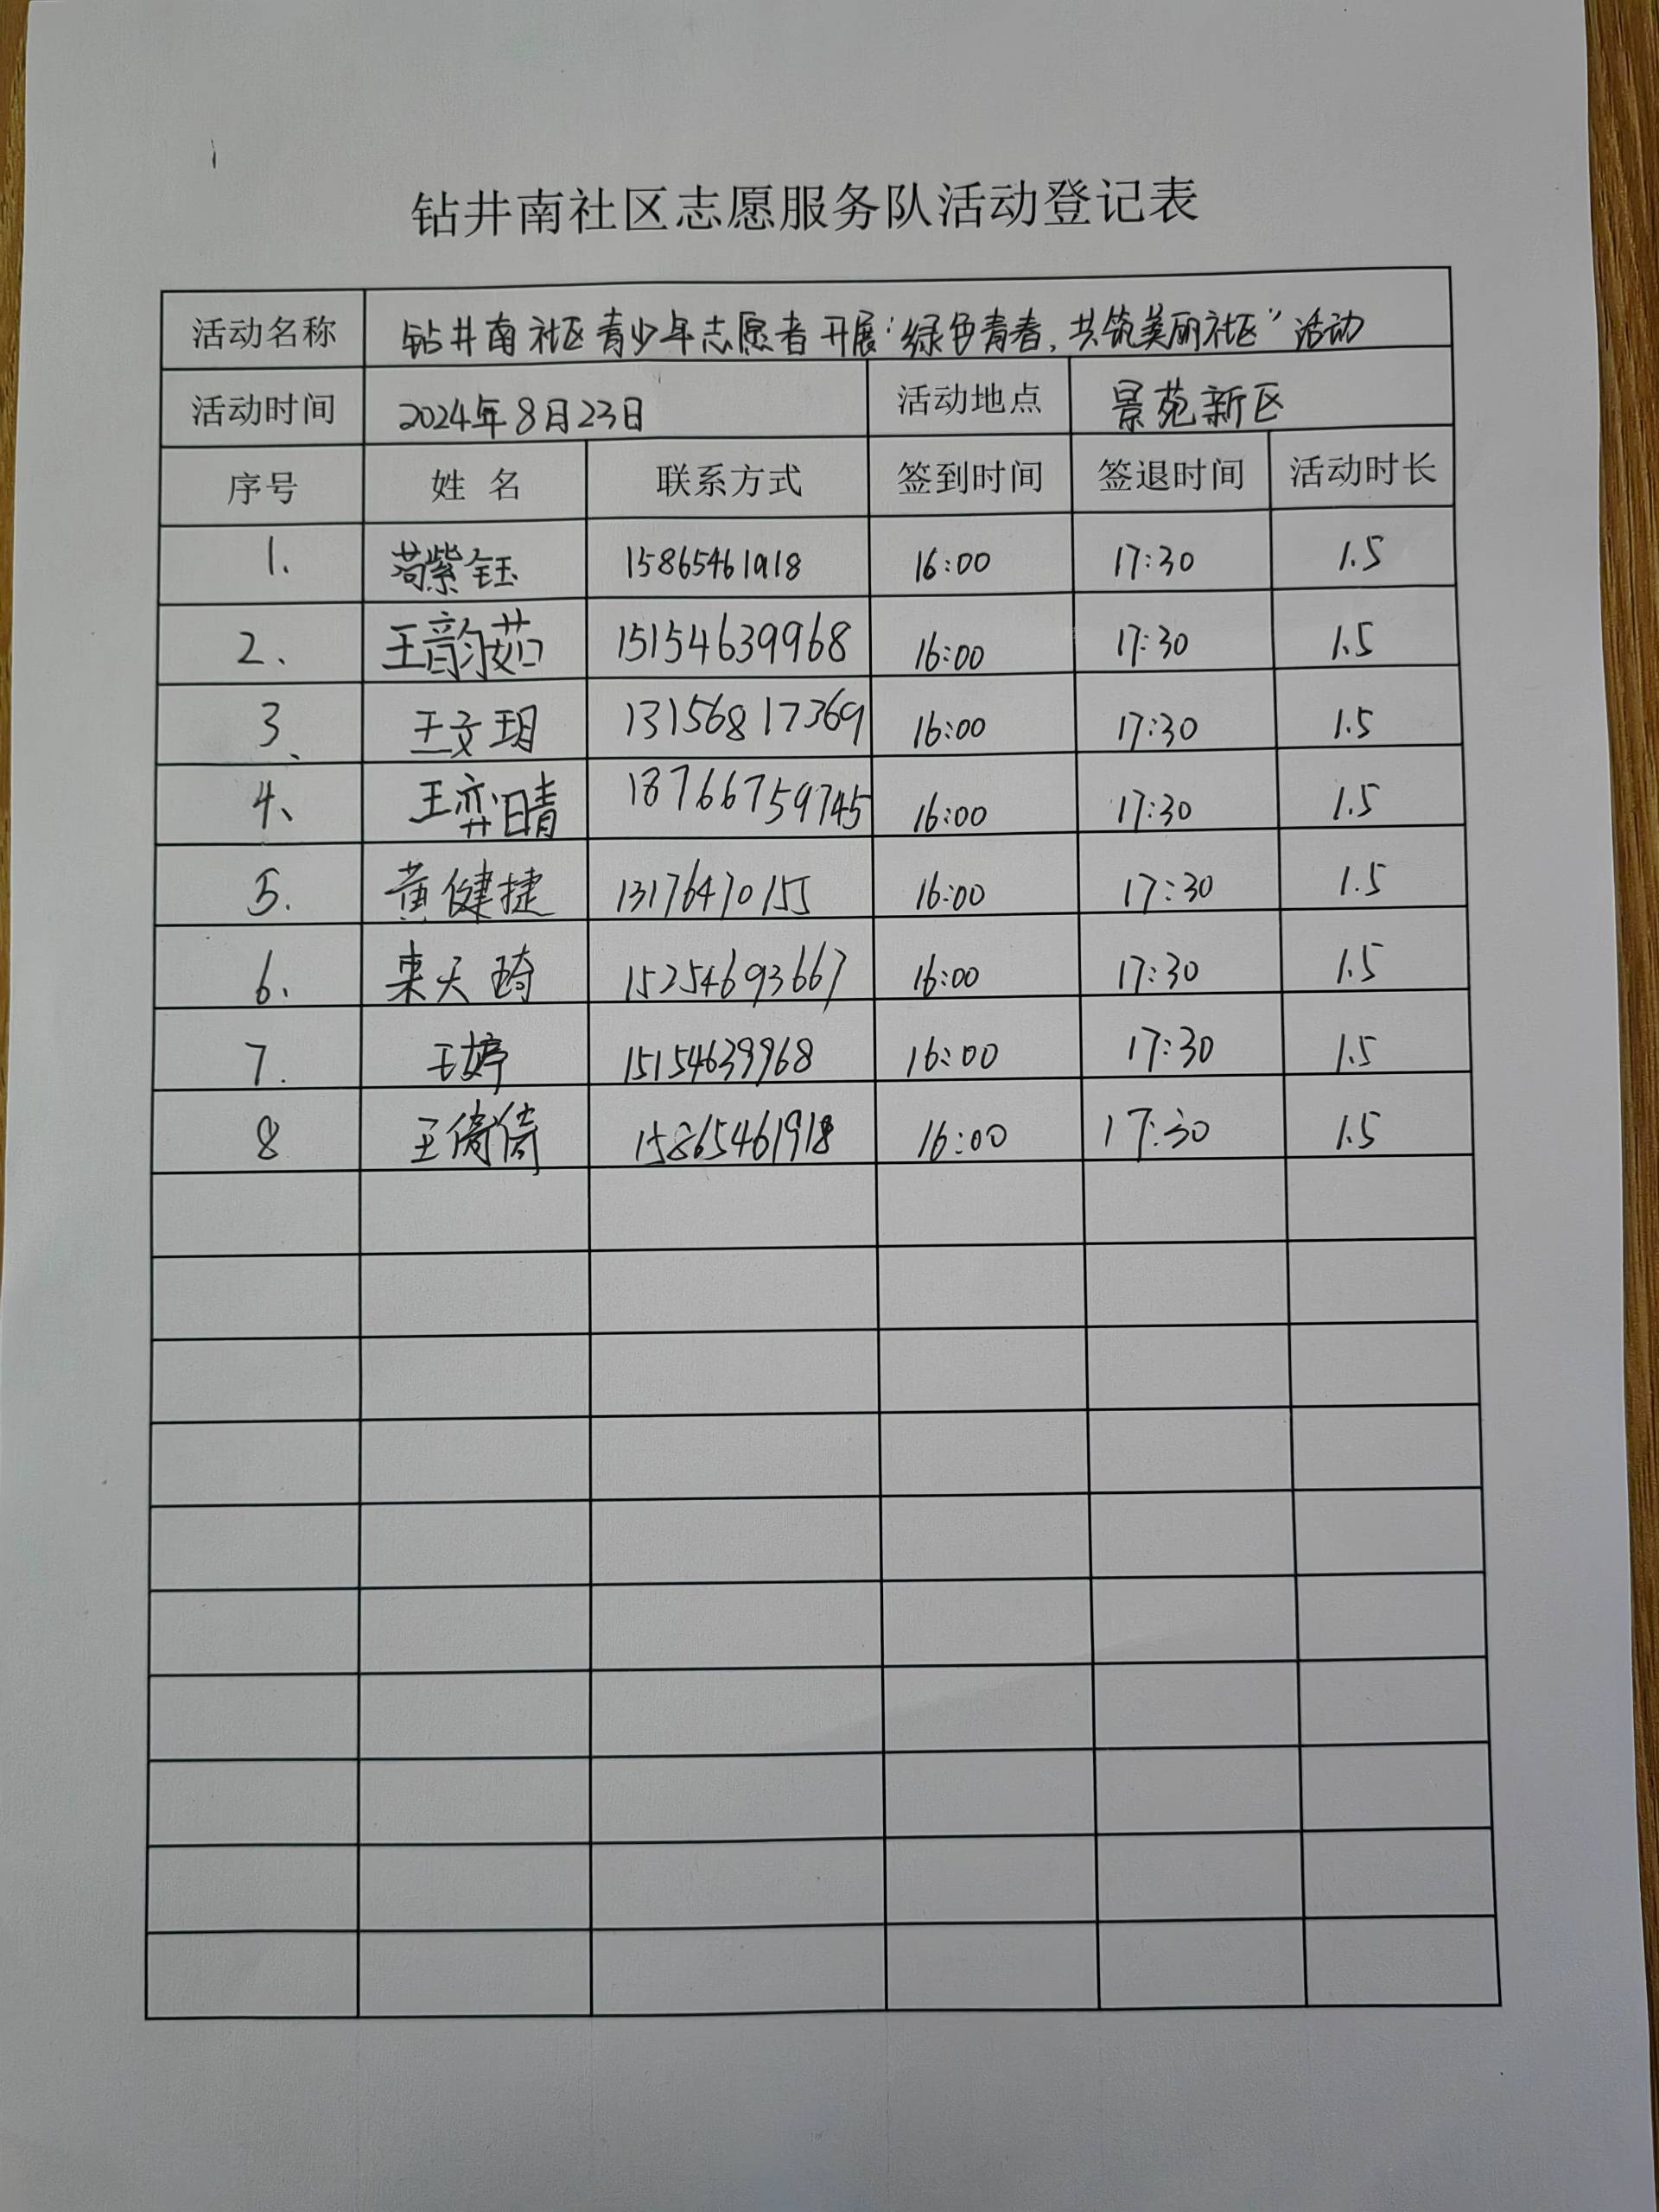 钻井南社区志愿服务队活动登记表
活动名称 钻井南社区青少年志愿者开展“绿色青春,共筑美丽社区”活动
活动时间 2024年8月23日 活动地点 景苑新区
序号 姓 名 联系方式 签到时间 签退时间 活动时长
1. 苟紫钰 15865461918 16:00 17:30 1.5
2、 王韵茹 15154639968 16:00 17:30 1.5
3、 王文玥 13156817369 16:00 17:30 1.5
4、 王弈晴 18766759745 16:00 17:30 1.5
5. 黄健捷 13176470155 16:00 17:30 1.5
6. 天琦 15254693667 16:00 17:30 1.5
7. 王婷 15154639968 16:00 17:30 1.5
8 王倚倚 15865461918 16:00 17:30 1.5